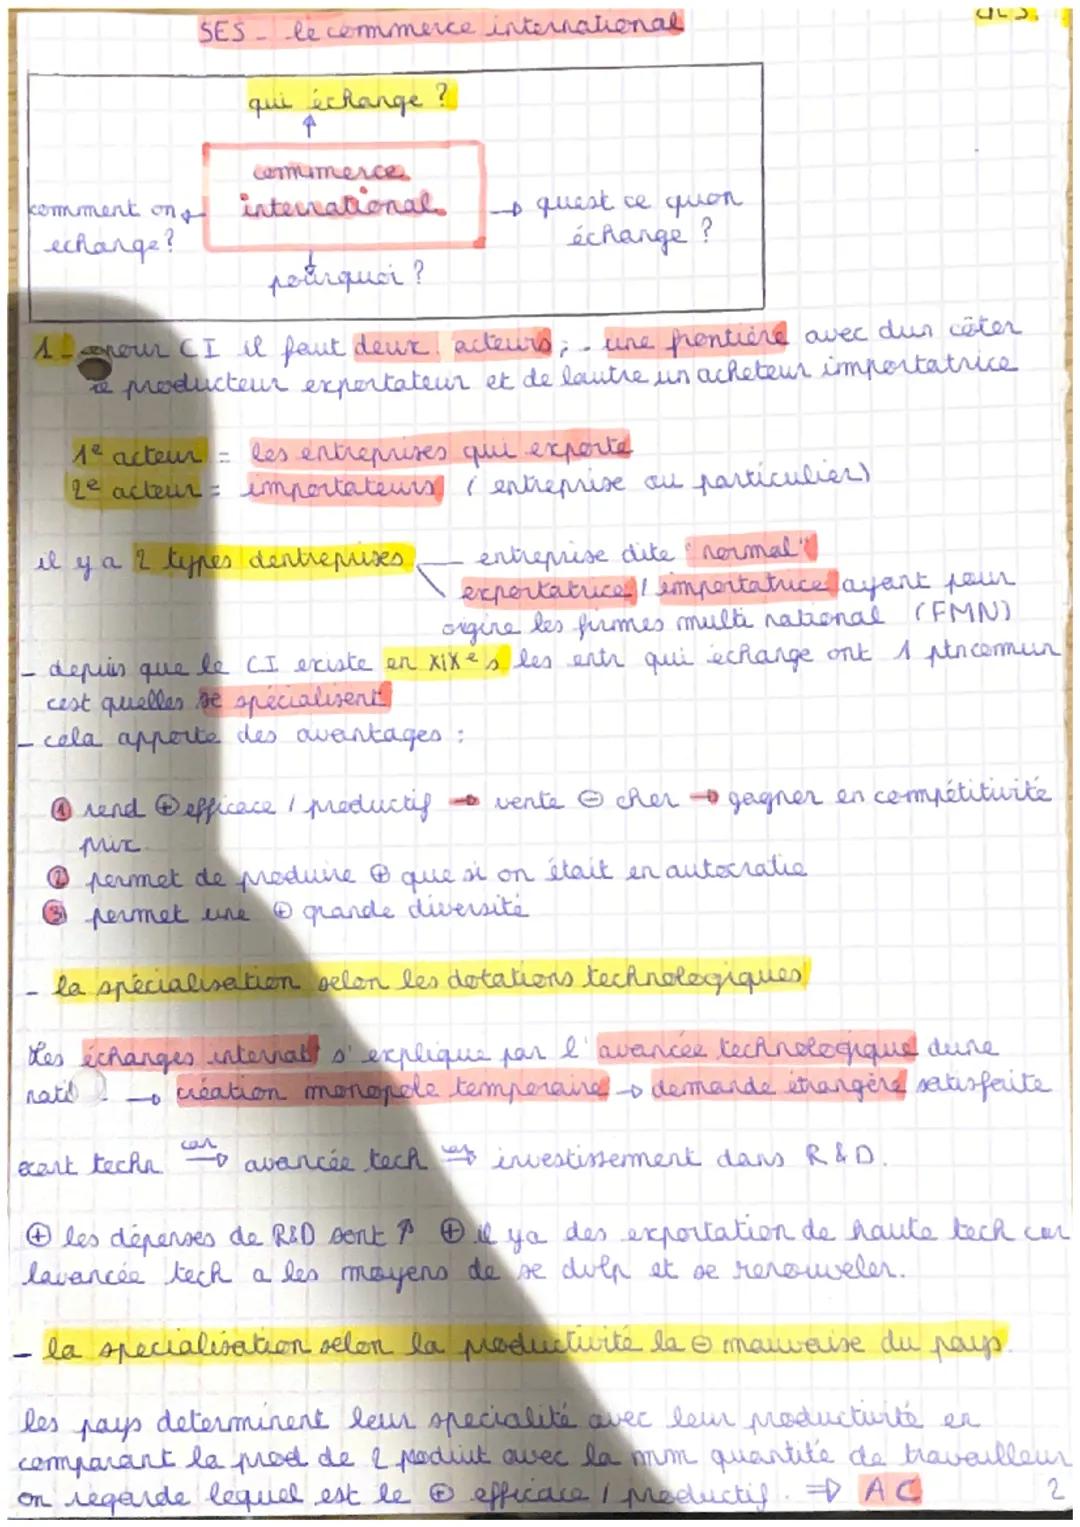 SES - le commerce international
qui échange ?
commerce
international
comment on
echange?
quest ce quon
échange ?
pourquoi ?
1 - pour CI il faut deux acteurs ; - une frontière avec dun côter
le producteur exportateur et de lautre un acheteur importatrice
1e acteur = les entreprises qui exporte
2e acteur = importateurs ( entreprise ou particulier)
il y a 2 types dentreprises
entreprise dite "normal"
exportatrice / importatrice ayant pour
origine les firmes multi national (FMN)
- depuis que le CI existe en XIXe s les entr qui échange ont 1 pt commun
cest quelles se spécialisent
- cela apporte des avantages :
① rend ⊕ efficace / productif → vente ⊖ cher → gagner en compétitivité
prix.
② permet de produire ⊕ que si on était en autocratie
③ permet une ⊕ grande diversité
- la spécialisation selon les dotations technologiques
Les échanges internat° s'explique par l'avancée technologique dune
nati → création monopole temporaire → demande étrangère satisfaite
ecart techn car → avancée tech car → investissement dans R&D.
⊕ les dépenses de R&D sont ↑ ⊕ il ya des exportation de haute tech car
lavancée tech a les moyens de se dvlp et se renouveler.
- la specialisation selon la productivité la ⊖ mauvaise du pays.
les pays determinent leur specialité avec leur productivité en
comparant la prod de 2 poduit avec la mm quantité de travailleur
on regarde lequel est le ⊕ efficace / productif. ⇒ AC
2